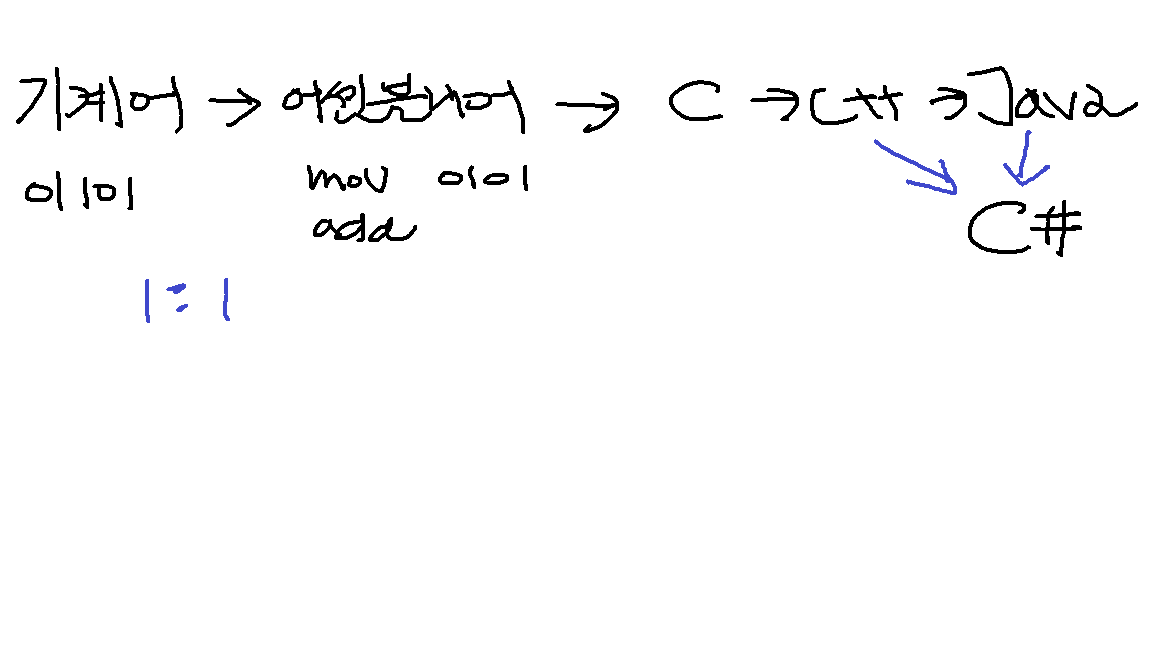 기계어 → 어셈블리어 → C → C++ → Java
01101 mov 0101 C#
add
1:1